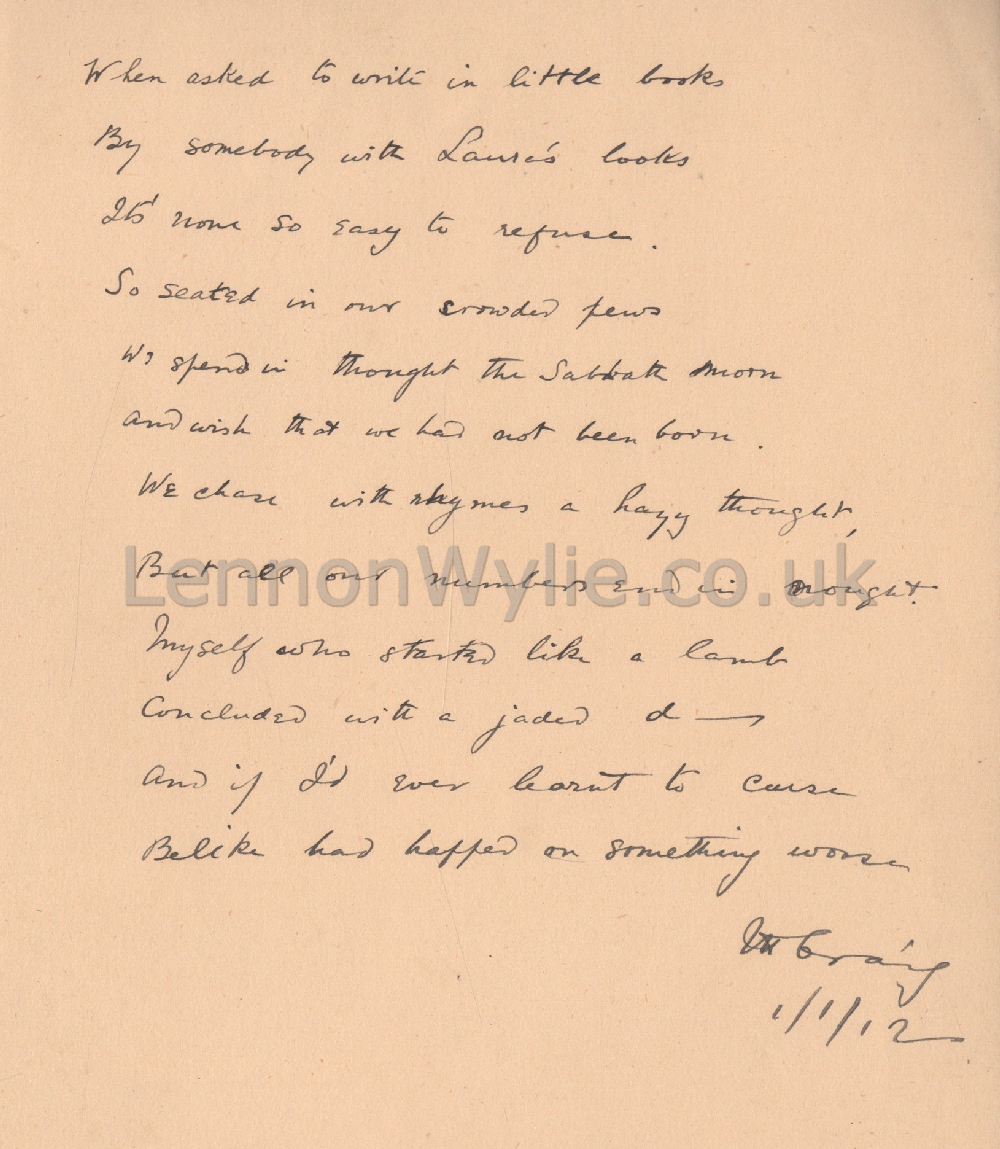 When asked to write in little books
By somebody with Laura's looks
Its' none so easy to refuse.
So seated in our crowded pews
We spend in thought the Sabbath morn
And wish that we had not been born.
We chase with rhymes a hazy thought,
But all our numbers end in nought.
LennonWylie.co.uk
Myself who started like a lamb
Concluded with a jaded d—
And if I'd ever learnt to curse
Belike had happed on something worse
Craig
1/1/12